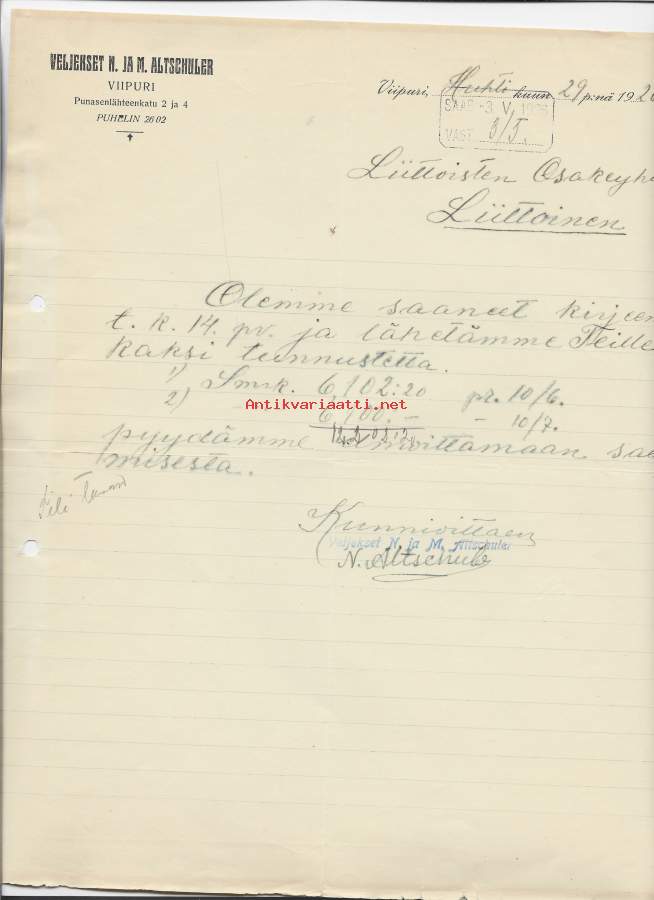 VELJEKSET N. JA M. ALTSCHULER
VIIPURI
Punasenlähteenkatu 2 ja 4
PUHELIN 26 02
Viipuri, Huhti kuun 29 p:nä 192
SAAP -3. V. 19
VAST. 3/5.
Liittoisten Osakeyh
Liittoinen
Olemme saaneet kirjeen
t. k. 14. pv. ja lähetämme Teille
kaksi tunnustetta.
1) Smk. 6,102:20 pr. 10/6.
2) 6,100. – – 10/7.
Antikvariaatti.net
pyydämme ilmoittamaan saa
misesta.
Kunnioittaen
Veljekset N. ja M. Altschuler
N. Altschuler